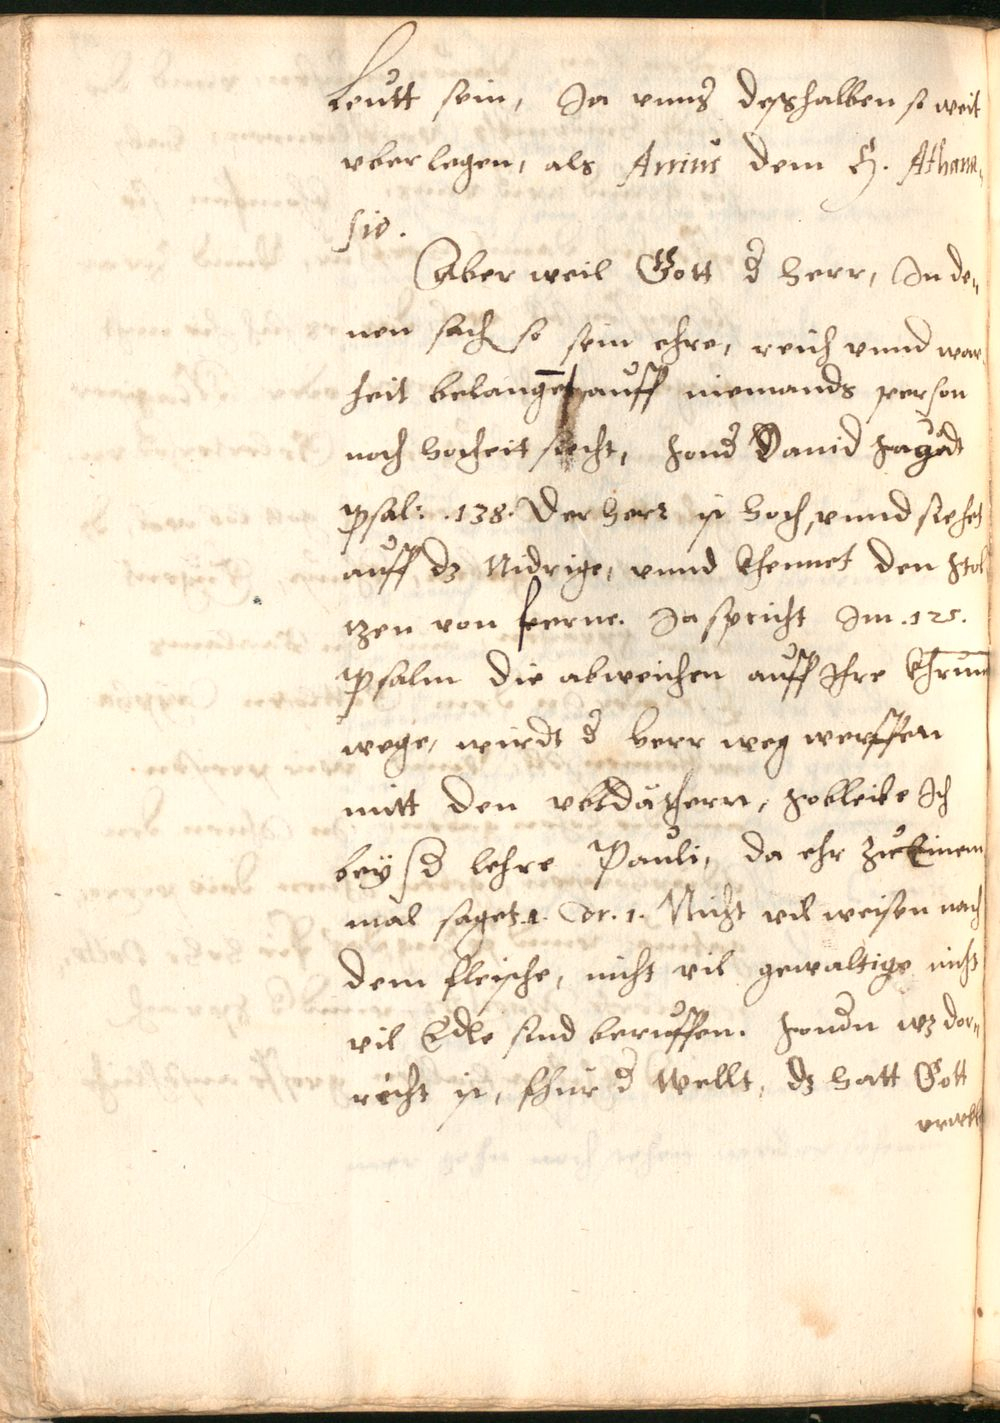 Leutt sein, Ja vnns deßhalben so weit
vberlegen, als Arrius dem H. Athana„
sio.
Aber weil Gott d Herr, In de„
nen sach so sein ehre, reich vnnd war
heit belanget, auff niemands person
noch hocheit siecht, sond Dauid sagdt
Psal: .138. Der Herr ist hoch, vnnd siehet
auff dz Nidrige, vnnd khennet den stol
tzen von ferne. Ja spricht Im .125.
Psalm die abweichen auff Ihre khrum
wege, wirdt d herr weg werffen
mitt den vbldäthern, so bleibe Ich
bey d lehre Pauli, da ehr zu Einem
mal saget. 1. Cor. 1. Nicht vil weisen nach
dem fleische, nicht vil gewaltige nicht
vil Edle sind beruffen. sondn wz dor„
richt ist, fhür d wellt, dz hatt Gott